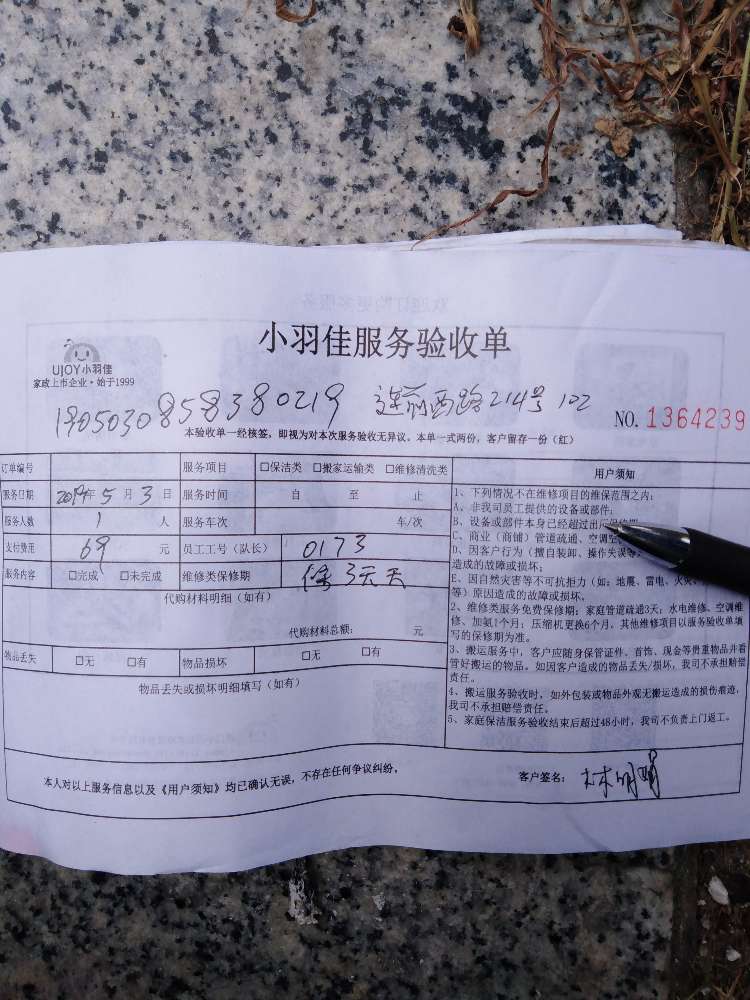 小羽佳服务验收单
UJOY小羽佳
家政上市企业·始于1999
1905030858380219 连前西路214号102
NO.1364239
本验收单一经核签,即视为对本次服务验收无异议。本单一式两份,客户留存一份(红)
订单编号 服务项目 □保洁类 □搬家运输类 □维修清洗类
服务日期 2019年5月3日 服务时间 自 至 止
服务人数 1 人 服务车次 车/次
支付费用 69 元 员工工号(队长) 0173
服务内容 □完成 □未完成 维修类保修期 保3天
代购材料明细(如有)
代购材料总额: 元
物品丢失 □无 □有 物品损坏 □无 □有
物品丢失或损坏明细填写(如有)
用户须知
1、下列情况不在维修项目的维保范围之内:
A、非我司员工提供的设备或部件;
B、设备或部件本身已经超过出厂保修期
C、商业(商铺)管道疏通、空调
D、因客户行为(擅自装卸、操作失误等
造成的故障或损坏;
E、因自然灾害等不可抗拒力(如:地震、雷电、火灾、
等)原因造成的故障或损坏。
2、维修类服务免费保修期:家庭管道疏通3天;水电维修、空调维
修、加氨1个月;压缩机更换6个月,其他维修项目以服务验收单填
写的保修期为准。
3、搬运服务中,客户应随身保管证件、首饰、现金等贵重物品并看
管好搬运的物品。如因客户造成的物品丢失/损坏,我司不承担赔偿
责任。
4、搬运服务验收时,如外包装或物品外观无搬运造成的损伤痕迹,
我司不承担赔偿责任。
5、家庭保洁服务验收结束后超过48小时,我司不负责上门返工。
本人对以上服务信息以及《用户须知》均已确认无误,不存在任何争议纠纷。
客户签名: 林明娟